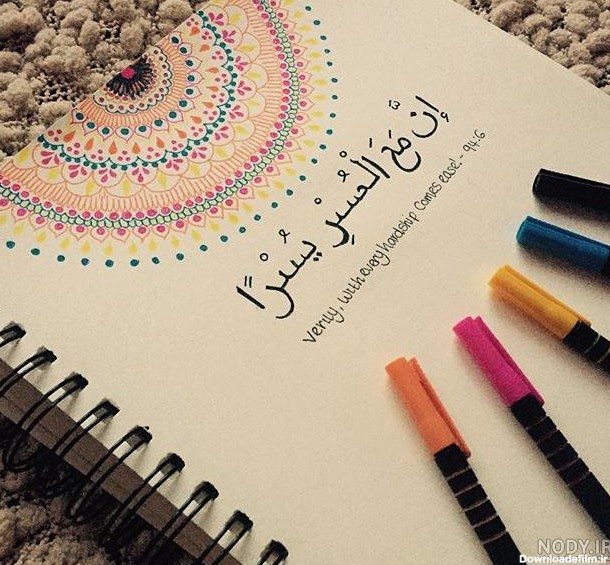 إنَّ مَعَ الْعُسْرِ يُسْرًا
Verily, with every hardship comes ease! - 94:6
NODY.IR
Downloadefilm.ir